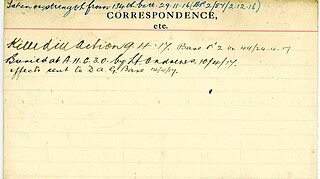 Taken on strength from 134th batt. 29.11.16 (Pt 2/87/2.12.16)
CORRESPONDENCE,
etc.
Killed in Action 9.4.17. Base Pt 2 on 44/24.4.17
Buried at A.11.C.3.0. by Lt. 10/4/17.
effects sent to D.A.G. Base 14/4/17.